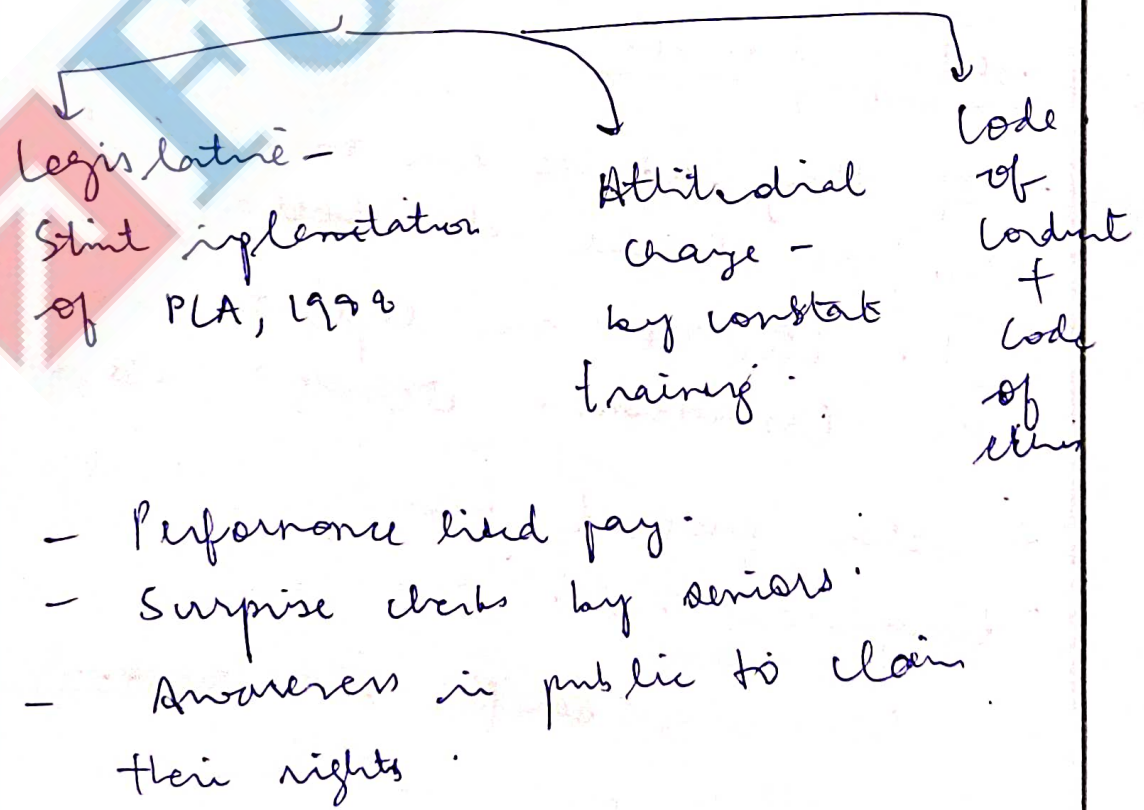 Legislative -
Strict implementation
of PCA, 1988
Attitudial
change -
by constant
training.
Code
of
Conduct
+
Code
of
ethics
- Performance linked pay.
- Surprise checks by seniors.
- Awareness in public to claim
their rights.